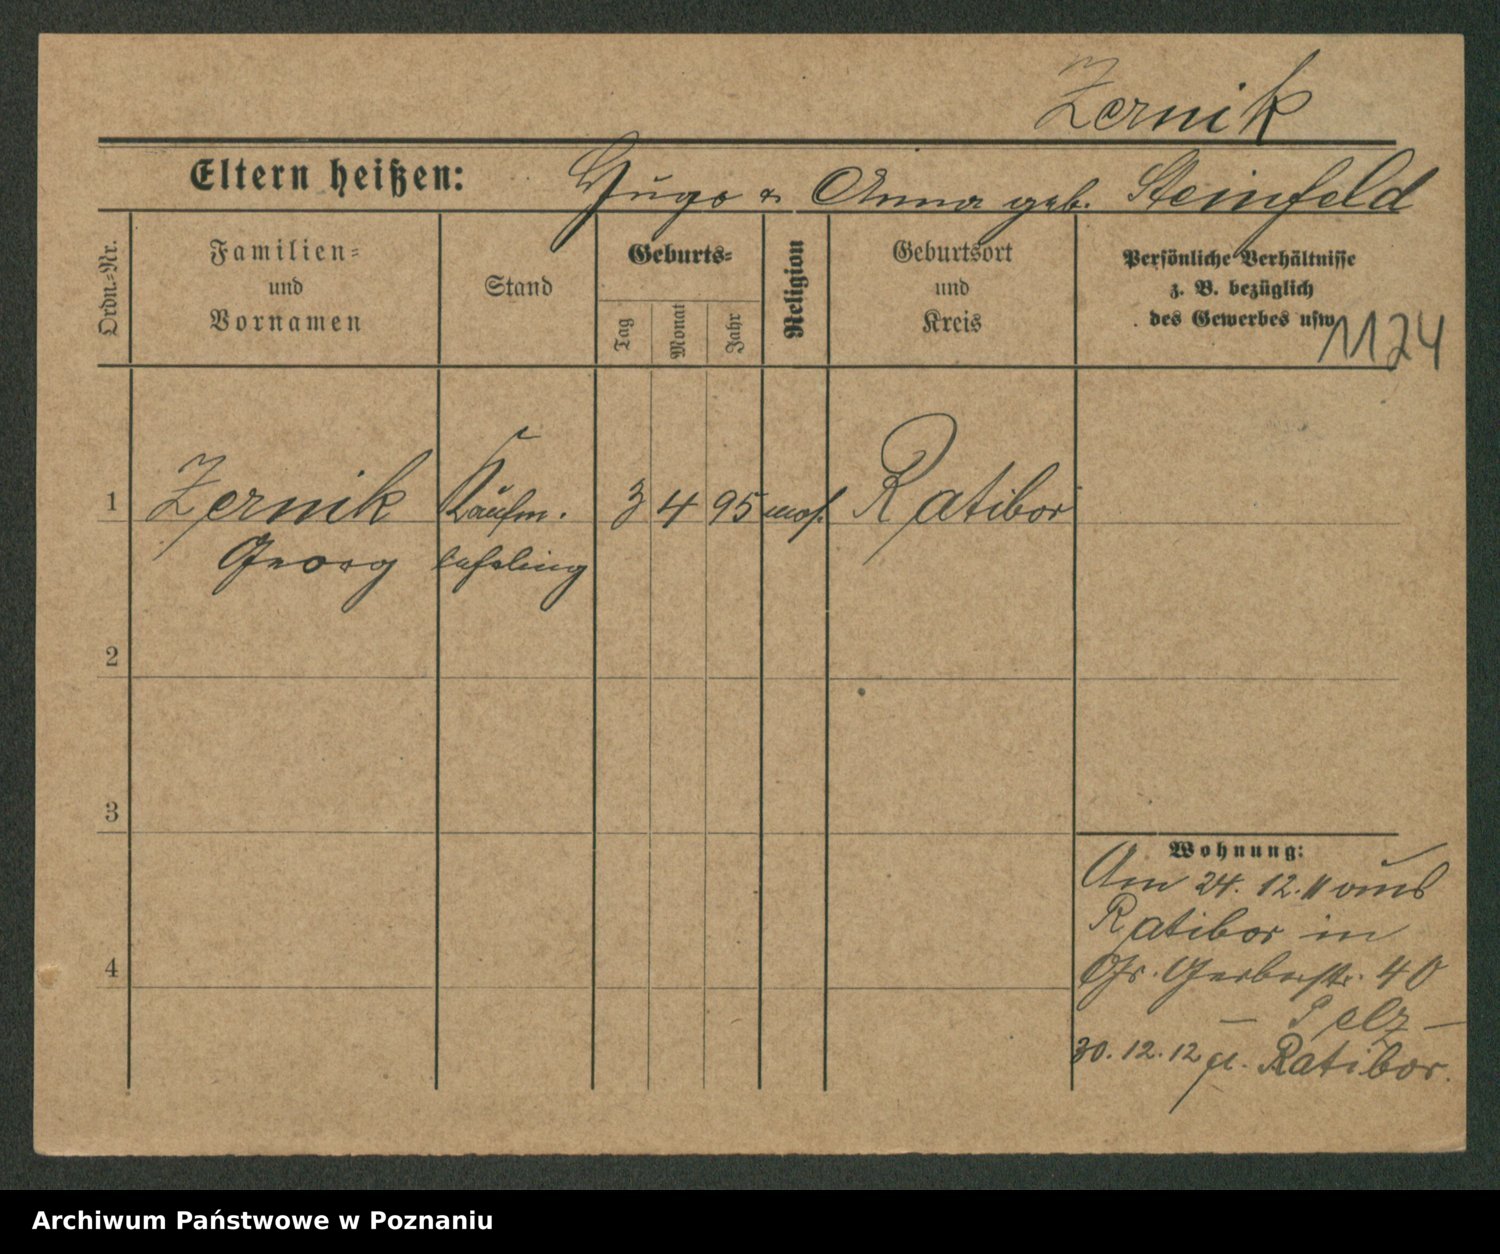 Zernik
Eltern heißen: Hugo & Anna geb. Steinfeld
Ordn.-Nr.
Familien-
und
Vornamen
Stand
Geburts-
Tag
Monat
Jahr
Religion
Geburtsort
und
Kreis
Persönliche Verhältnisse
z. B. bezüglich
des Gewerbes usw.
1124
1 Zernik Kaufm. 3 4 95 mos. Ratibor
Georg lehrling
2
3
4
Wohnung:
Am 24. 12. 11 aus
Ratibor in
Gr. Gerberstr. 40
– Pelz –
30. 12. 12 n. Ratibor.
Archiwum Państwowe w Poznaniu